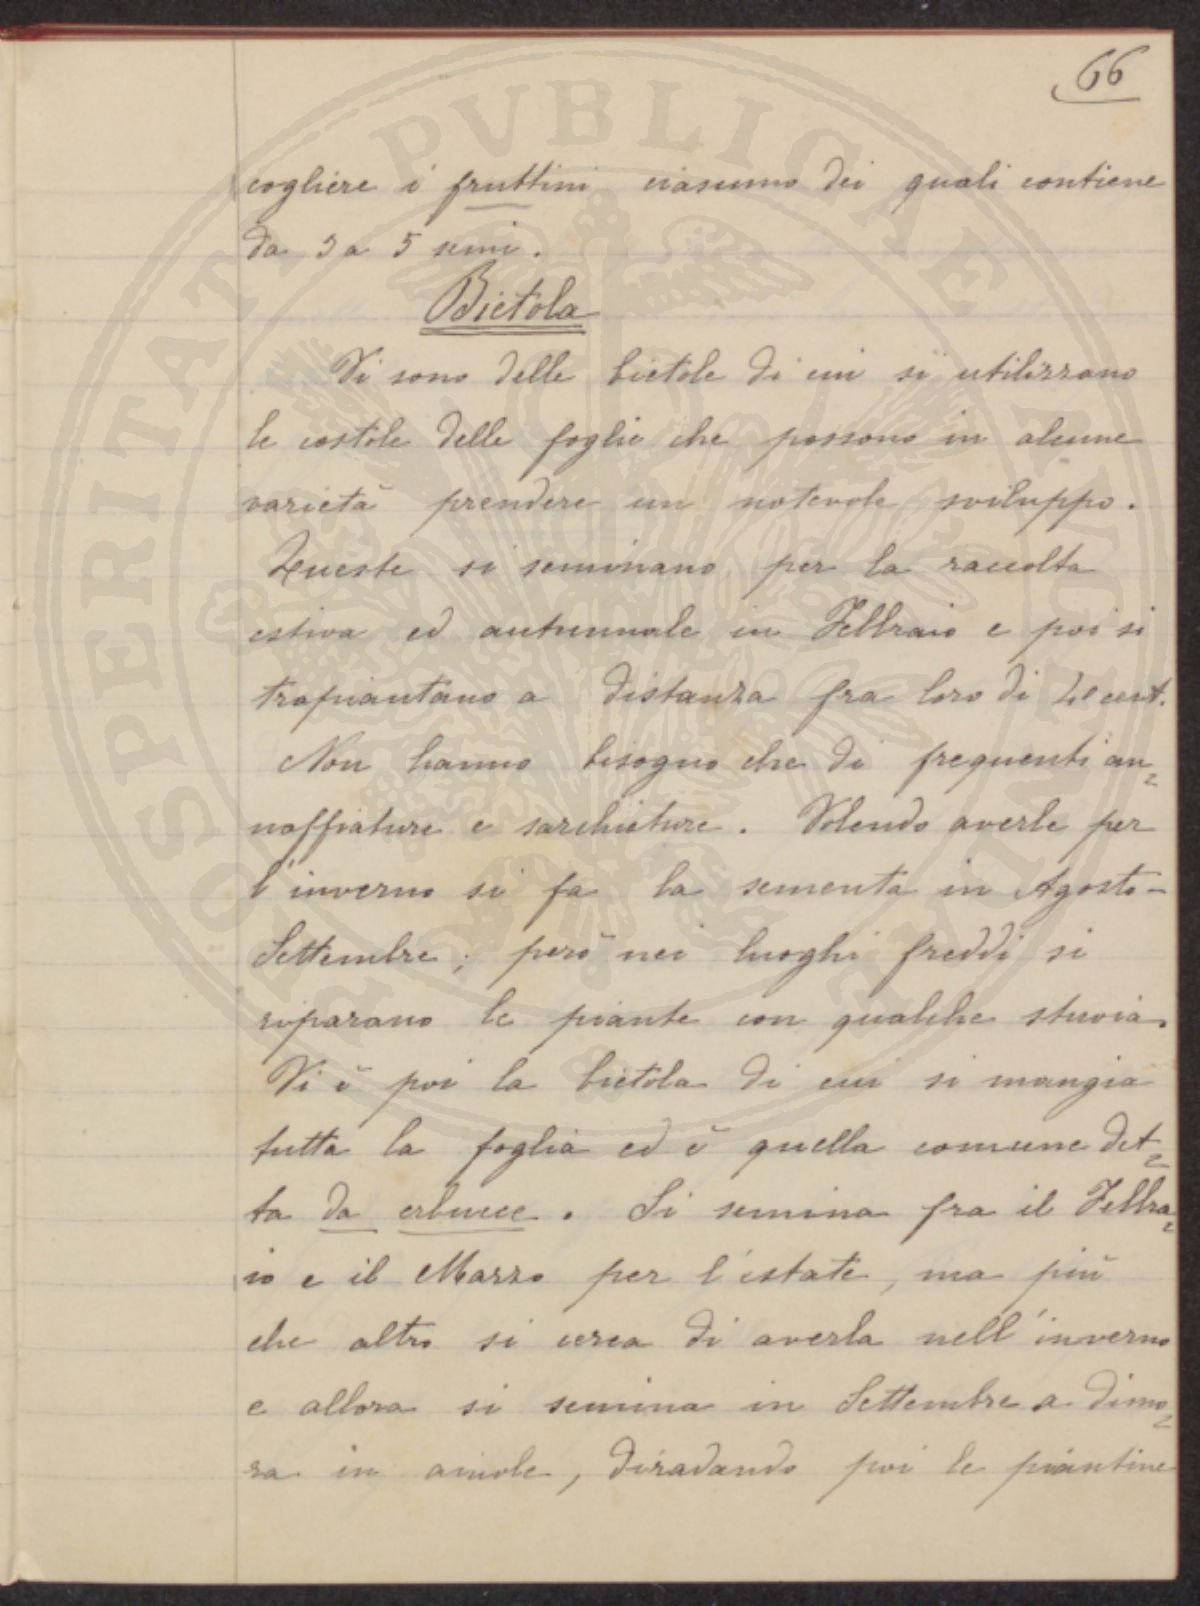 66
cogliere i fruttini ciascuno dei quali contiene
da 3 a 5 semi.
Bietola
Vi sono delle bietole di cui si utilizzano
le costole delle foglie che possono in alcune
varietà prendere un notevole sviluppo.
Queste si seminano per la raccolta
estiva ed autunnale in Febbraio e poi si
trapiantano a distanza fra loro di 40 cent.
Non hanno bisogno che di frequenti an=
naffiature e sarchiature. Volendo averle per
l'inverno si fa la sementa in Agosto-
Settembre; però nei luoghi freddi si
riparano le piante con qualche stuoia.
Vi è poi la bietola di cui si mangia
tutta la foglia ed è quella comune det=
ta da erbucce. Si semina fra il Febbra=
io e il Marzo per l'estate, ma più
che altro si cerca di averla nell'inverno
e allora si semina in Settembre a dimo=
ra in aiuole, diradando poi le piantine
PROSPERITATI PVBLICAE AVGENDAE